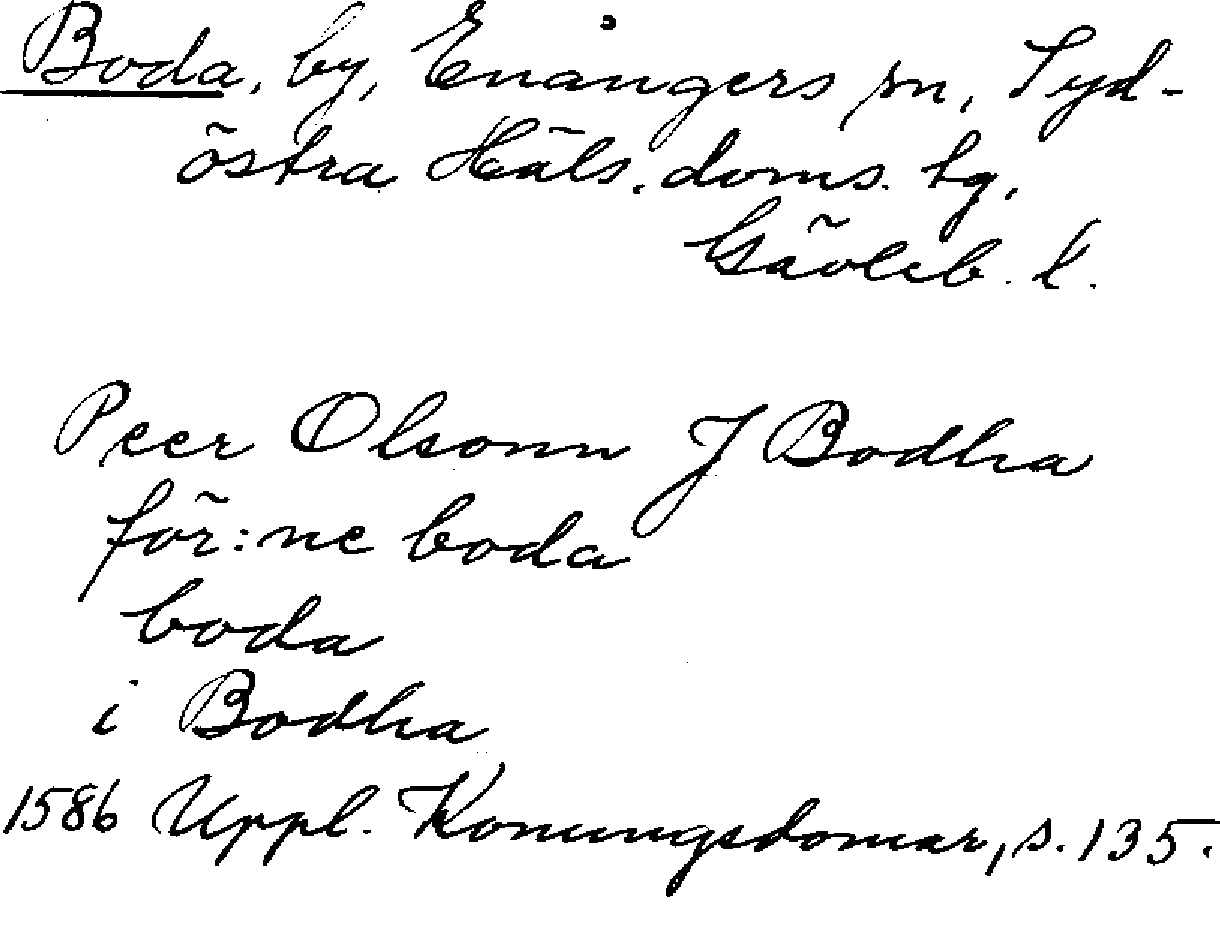 Boda, by, Enångers sn, Syd-
östra Häls. doms. tg,
Gävleb. l.
Peer Olsonn J Bodha
för:ne boda
boda
i Bodha
1586 Uppl. Konungsdomar, s. 135.